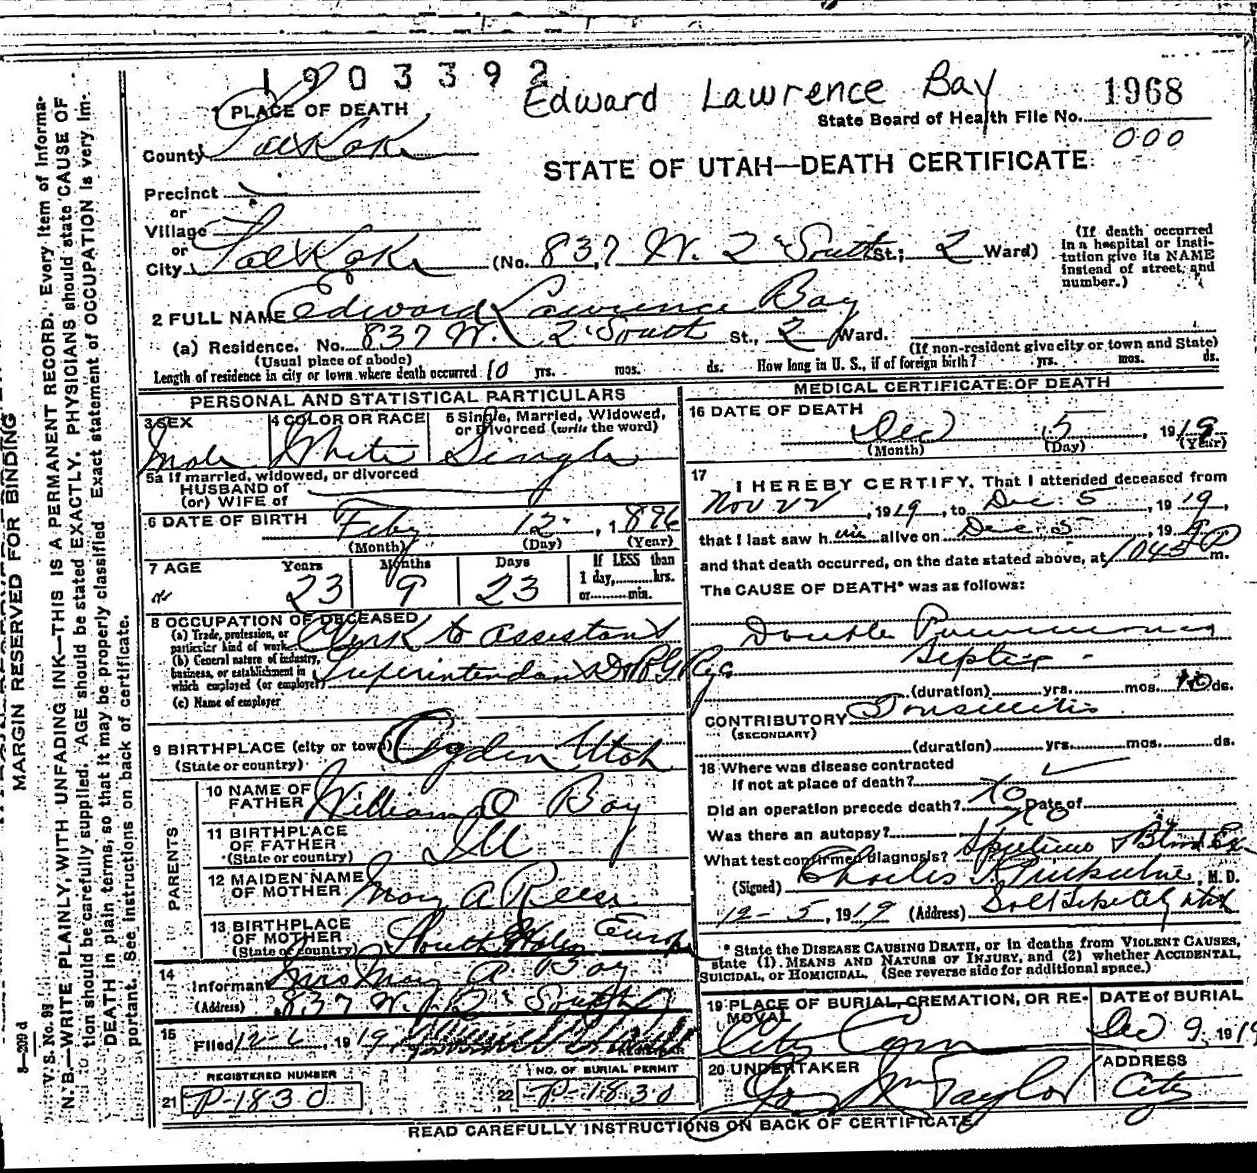 1903392
Edward Lawrence Bay
1968
State Board of Health File No.
000
1 PLACE OF DEATH
County Salt Lake
STATE OF UTAH—DEATH CERTIFICATE
Precinct
or
Village
or
City Salt Lake (No. 837 W. 2 South St.; 2 Ward)
(If death occurred in a hospital or institution give its NAME instead of street, and number.)
2 FULL NAME Edward Lawrence Bay
(a) Residence, No. 837 W. 2 South St., 2 Ward.
(Usual place of abode) (If non-resident give city or town and State)
Length of residence in city or town where death occurred 10 yrs. mos. ds. How long in U. S., if of foreign birth? yrs. mos. ds.
PERSONAL AND STATISTICAL PARTICULARS
3 SEX Male
4 COLOR OR RACE White
5 Single, Married, Widowed, or Divorced (write the word) Single
5a If married, widowed, or divorced
HUSBAND of
(or) WIFE of
6 DATE OF BIRTH Feby 12, 1896
(Month) (Day) (Year)
7 AGE Years 23 Months 9 Days 23
If LESS than 1 day, hrs. or min.
8 OCCUPATION OF DECEASED
(a) Trade, profession, or particular kind of work Clerk to assistant
(b) General nature of industry, business, or establishment in which employed (or employer) Superintendant D & R G Ry Co
(c) Name of employer
9 BIRTHPLACE (city or town) Ogden Utah
(State or country)
PARENTS
10 NAME OF FATHER William O Bay
11 BIRTHPLACE OF FATHER Ill
(State or country)
12 MAIDEN NAME OF MOTHER Mary A Reese
13 BIRTHPLACE OF MOTHER South Wales Europe
(State or country)
14 Informant Mrs Mary A Bay
(Address) 837 W. 2 South
15 Filed 12-6, 1919
REGISTRAR
REGISTERED NUMBER
21 P-1830
NO. OF BURIAL PERMIT
22 P-1830
MEDICAL CERTIFICATE OF DEATH
16 DATE OF DEATH
Dec 5, 1919
(Month) (Day) (Year)
17 I HEREBY CERTIFY, That I attended deceased from
Nov 22, 1919, to Dec. 5, 1919,
that I last saw him alive on Dec. 5, 1919
and that death occurred, on the date stated above, at 1045 P m.
The CAUSE OF DEATH* was as follows:
Double Pneumonia
Septic
(duration) yrs. mos. 10 ds.
CONTRIBUTORY Tonsillitis
(SECONDARY)
(duration) yrs. mos. ds.
18 Where was disease contracted
If not at place of death?
Did an operation precede death? No Date of
Was there an autopsy? No
What test confirmed diagnosis? Sputum & Blood Ex
(Signed) Charles, M. D.
12-5, 1919 (Address) Salt Lake City Utah
* State the DISEASE CAUSING DEATH, or in deaths from VIOLENT CAUSES, state (1) MEANS AND NATURE OF INJURY, and (2) whether ACCIDENTAL, SUICIDAL, or HOMICIDAL. (See reverse side for additional space.)
19 PLACE OF BURIAL, CREMATION, OR REMOVAL City Cem
DATE of BURIAL Dec 9, 1919
20 UNDERTAKER Jos Wm Taylor
ADDRESS City
READ CAREFULLY INSTRUCTIONS ON BACK OF CERTIFICATE
8—209 d
V. S. No. 99
MARGIN RESERVED FOR BINDING
N. B.—WRITE PLAINLY, WITH UNFADING INK—THIS IS A PERMANENT RECORD. Every item of information should be carefully supplied. AGE should be stated EXACTLY. PHYSICIANS should state CAUSE OF DEATH in plain terms, so that it may be properly classified. Exact statement of OCCUPATION is very important. See instructions on back of certificate.